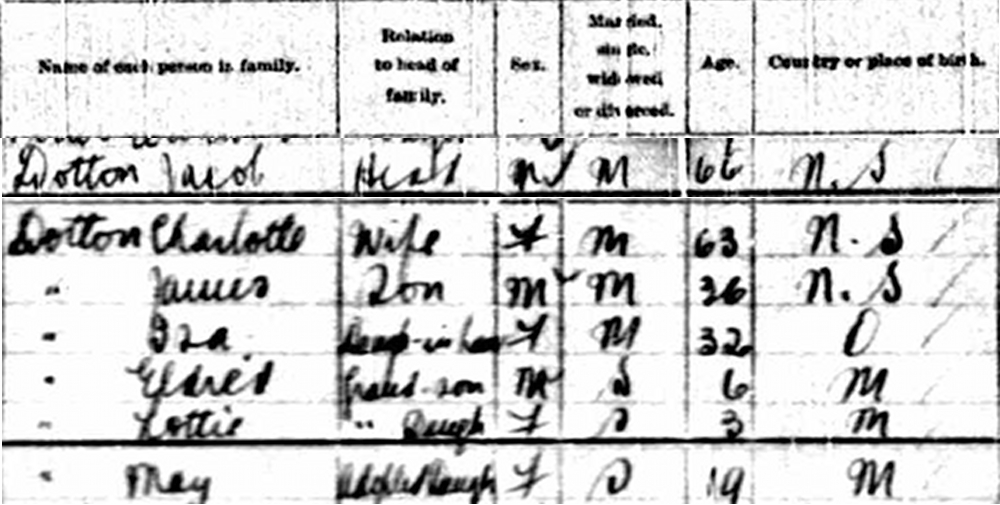 Name of each person in family. Relation to head of family. Sex. Married, single, widowed or divorced. Age. Country or place of birth.
Dotton Jacob Head M M 66 N.S
Dotton Charlotte Wife F M 63 N.S
" James Son M M 36 N.S
" Iza. Daugh-in law F M 32 O
" Eldred Grand-son M S 6 M
" Lottie " Daugh F S 3 M
" May Adopted Daugh F S 19 M